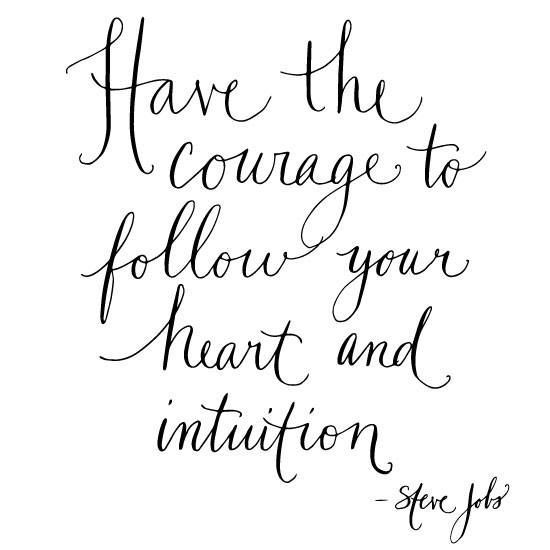 Have the
courage to
follow your
heart and
intuition
- Steve Jobs